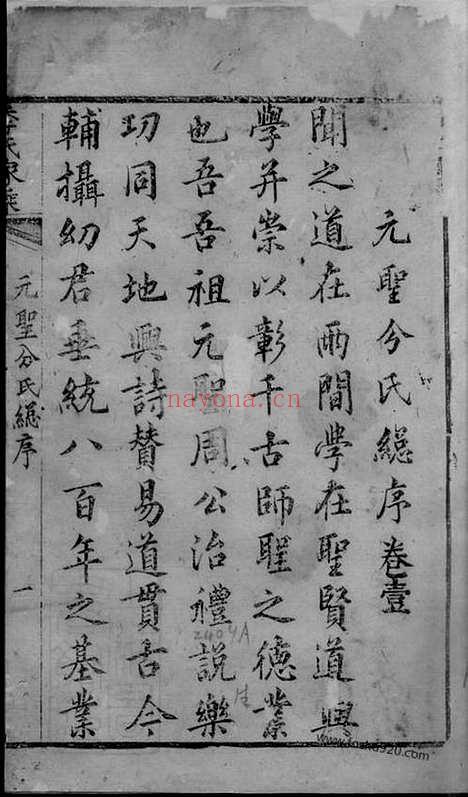 元聖分氏緫序卷壹
聞之道在兩間學在聖賢道與
學并崇以彰千古師聖之德業
也吾吾祖元聖周公治禮說樂
功同天地興詩贊易道貫古今
輔攝幼君垂統八百年之基業
元聖分氏緫序
一
nayona.cn
2404A